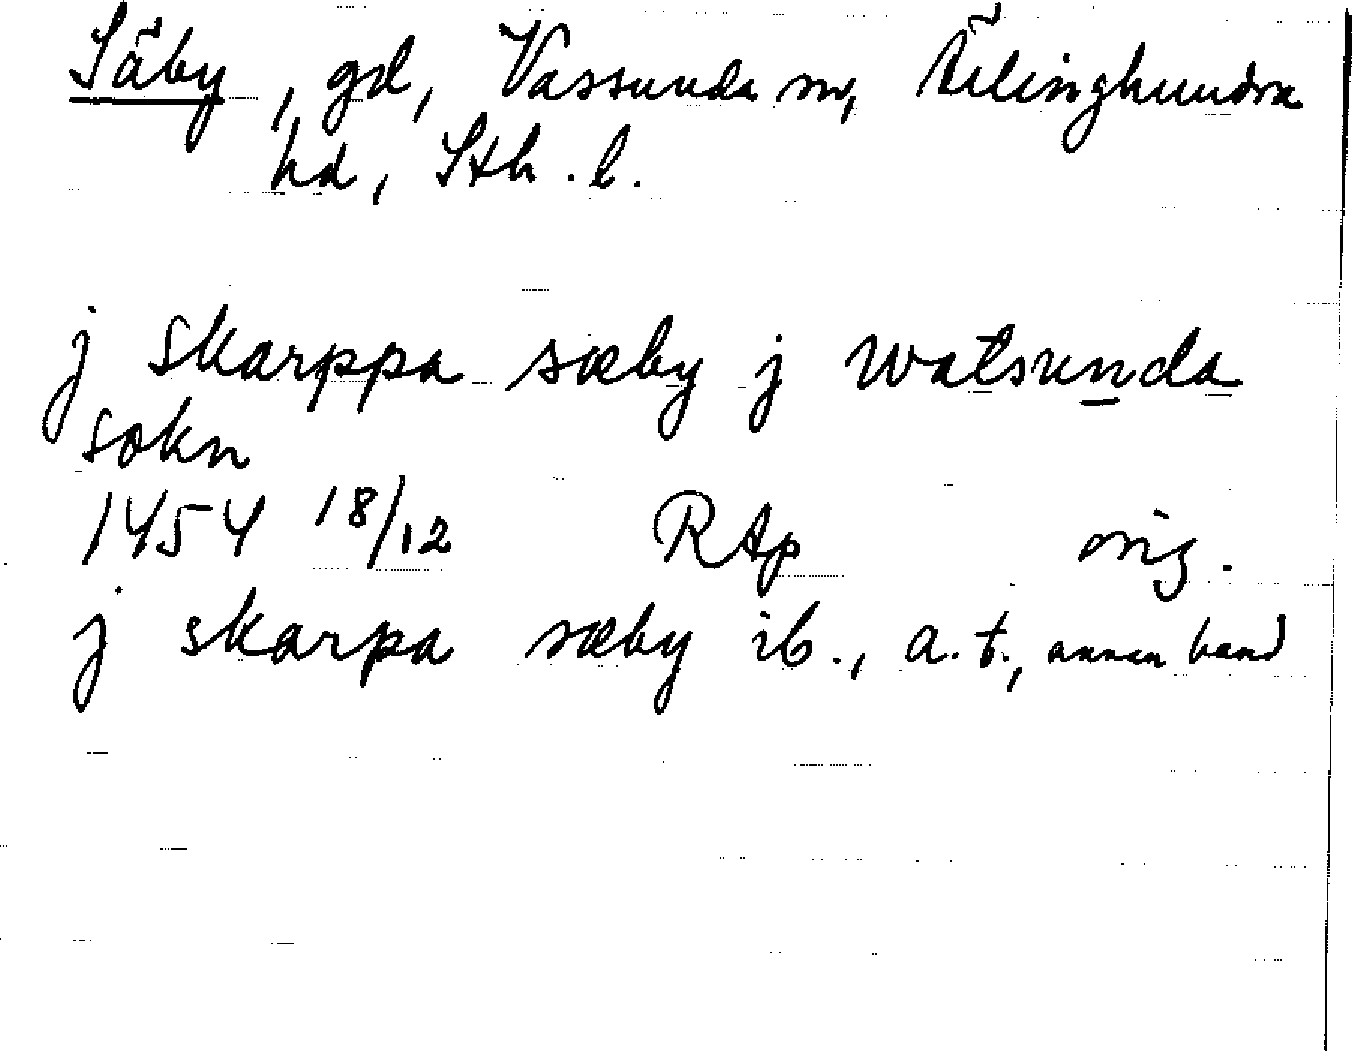 Säby, gd, Vassunda sn, Ärlinghundra
hd, Sth. l.
j skarppa sæby j watsunda
sokn
1454 18/12 RAp orig.
j skarpa sæby ib., a.t., annan hand